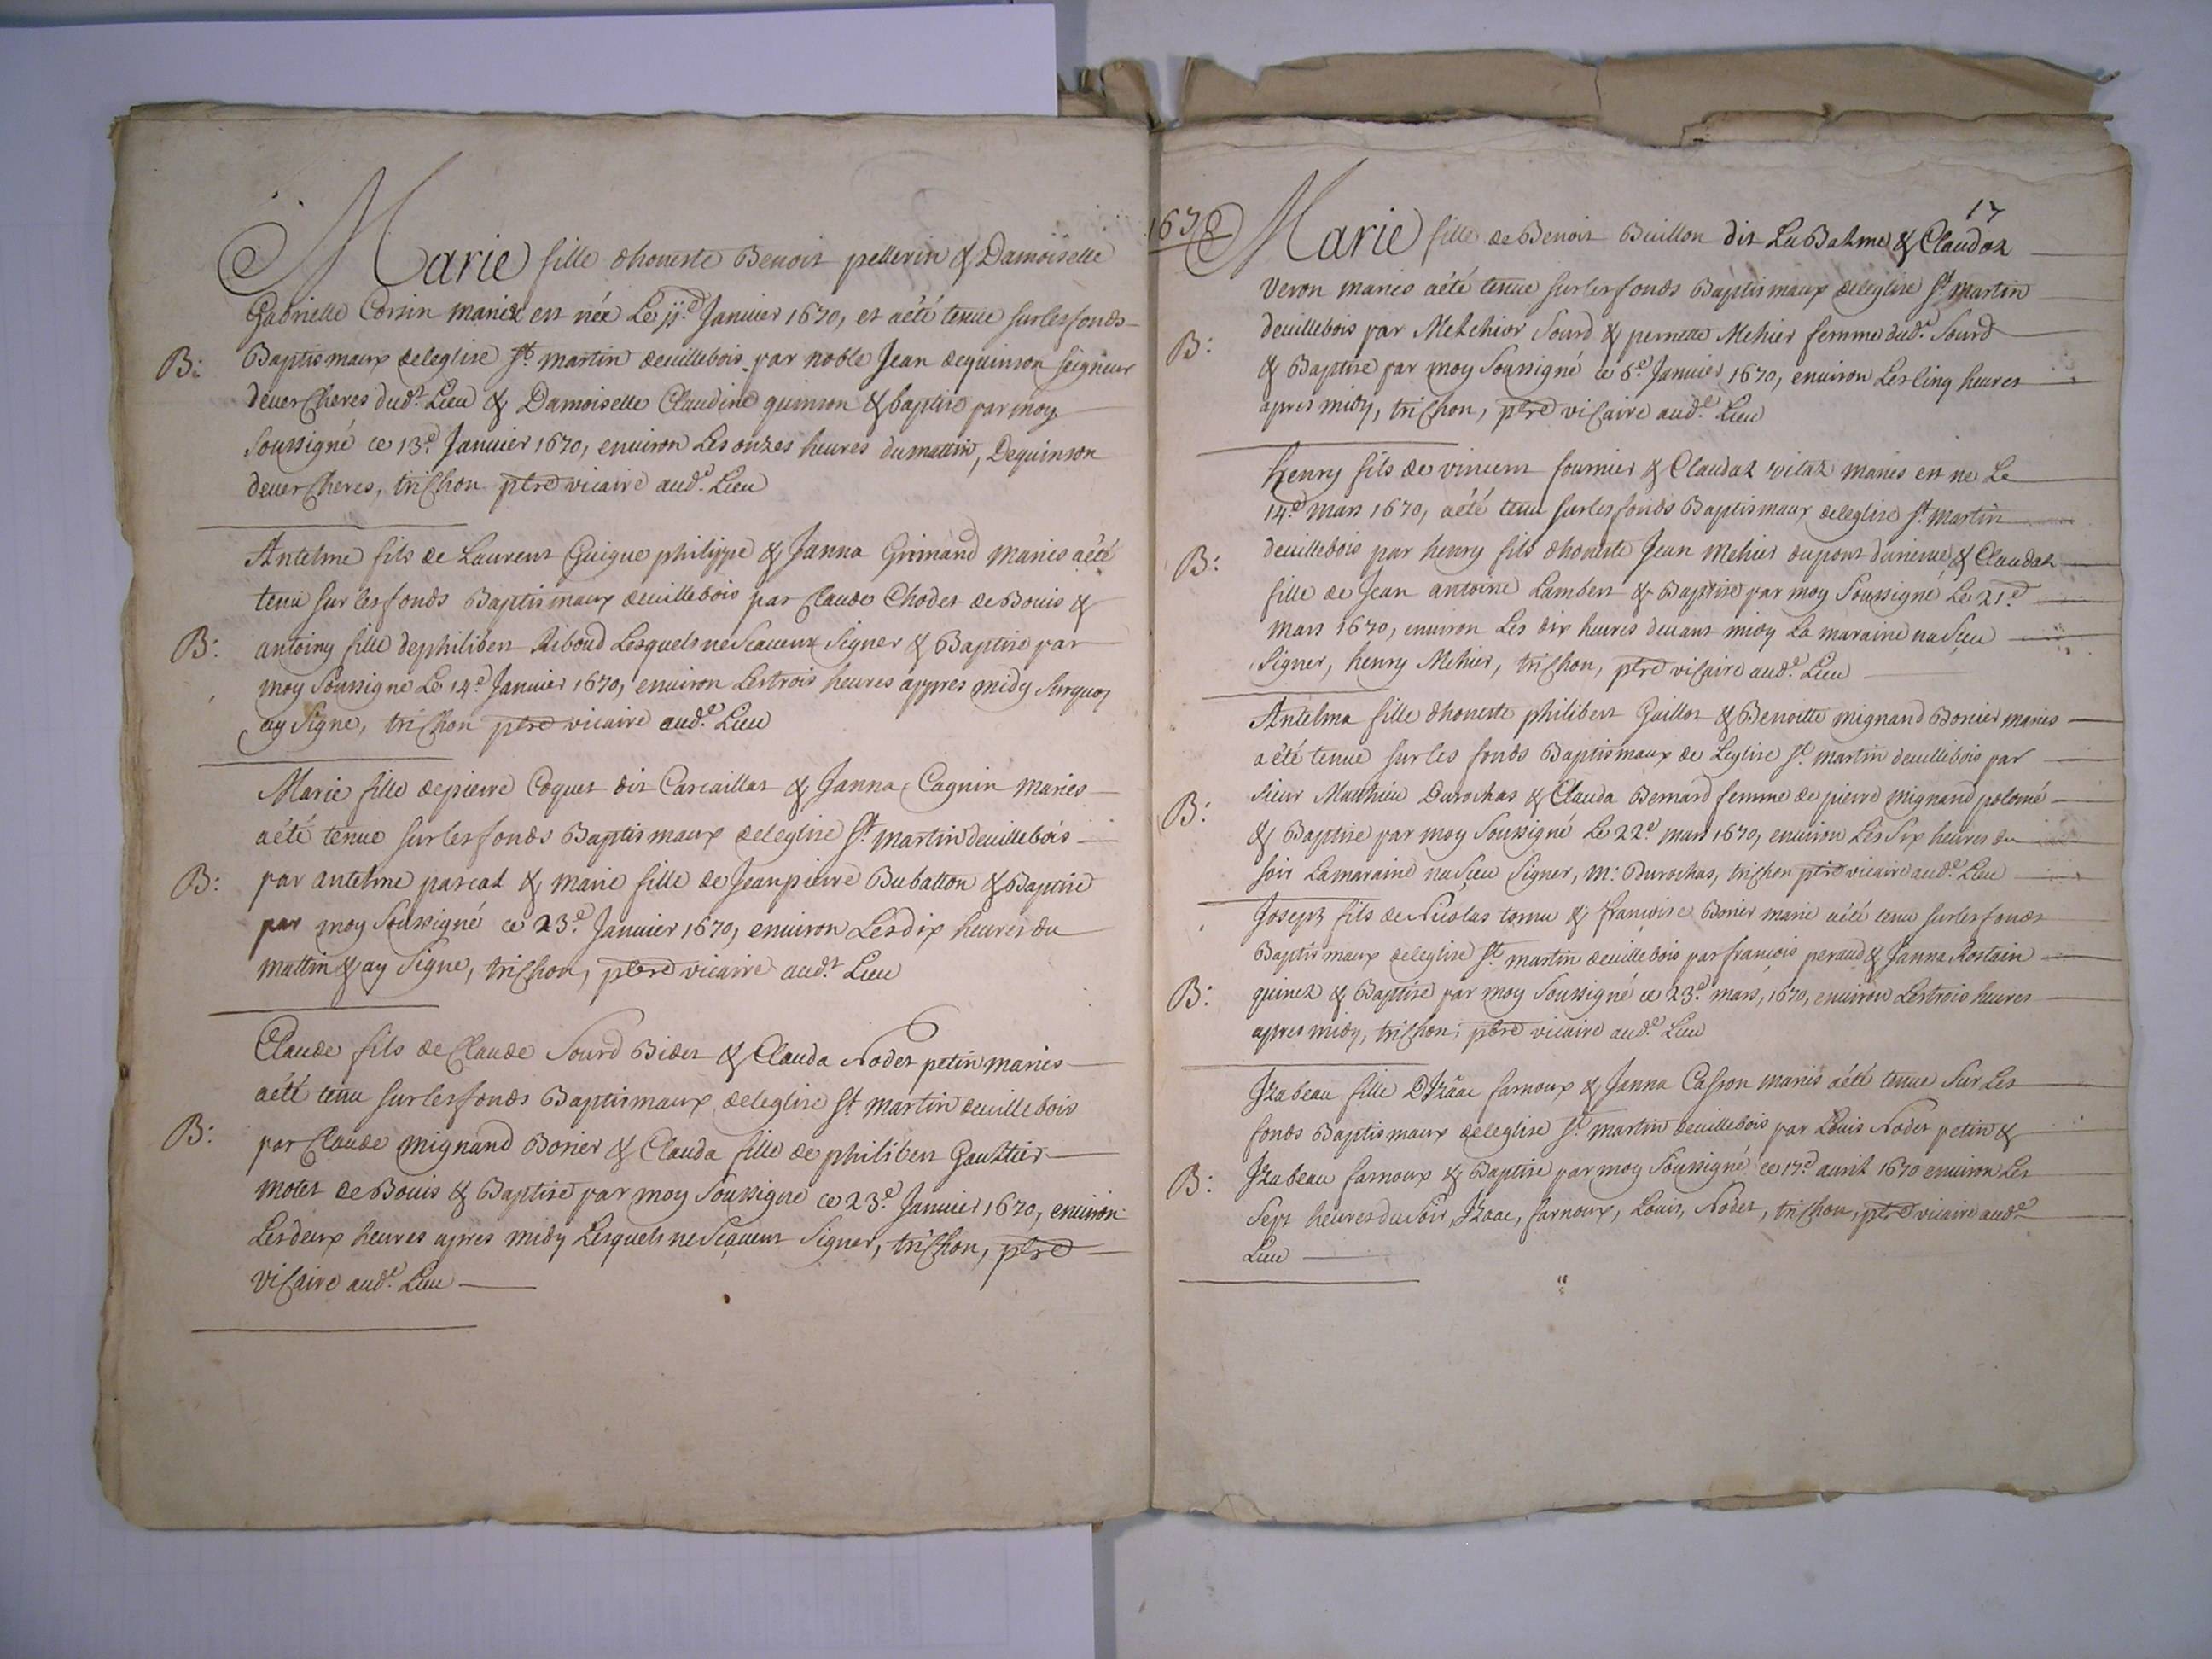 Marie fille dhoneste Benoit pellerin & Damoiselle
Gabrielle Corsin mariez est née Le jj.e Januier 1670, et aété tenue surlesfonds
B: Baptismaux deleglise St. martin deuillebois par noble Jean dequinson seigneur
deuerCheres dud.t Lieu & Damoiselle Claudine quinson & baptisé parmoy
soussigné ce 13.e Januier 1670, enuiron Les onzes heures dumattin, Dequinson
deuerCheres, triChon ptre vicaire aud.t Lieu
Antelme fils de Laurent Guigue philippe & Janna Grimand maries aété
tenu sur lesfonds Baptismaux deuillebois par Claude Chodet de Bouis &
B: antoiny fille dephilibert Riboud Lesquels ne Scauent Signer & Baptisé par
moy Soussigné Le 14.e Januier 1670, enuiron Lestrois heures appres midy Surquoy
ay Signe, triChon ptre vicaire aud.t Lieu
Marie fille depierre Coquet dit Carcaillat & Janna Cagnin maries
aété tenue surlesfonds Baptismaux deleglise St. martin deuillebois
B: par antelme pascal & marie fille de Jeanpierre Dubatton & Baptisé
par moy Soussigné ce 23.e Januier 1670, enuiron Lesdix heures du
mattin & ay Signe, triChon, ptre vicaire aud.t Lieu
Claude fils de Claude Sourd Bidet & Clauda Nodet petin maries
aété tenu surlesfonds Baptismaux deleglise St martin deuillebois
B: par Claude mignand Borier & Clauda fille de philibert Gaultier
molet de Bouis & Baptisé par moy Soussigné ce 23.e Januier 1670, enuiron
Lesdeux heures apres midy Lesquels ne Scauent Signer, triChon, ptre
viCaire aud.t Lieu
17
1670 Marie fille de Benoit Buillon dit La Balme & Claudaz
veron maries aété tenue surlesfonds Baptismaux deleglise St. martin
deuillebois par Melchior Sourd & pernette Mehier femme dud.t Sourd
B: & Baptisé par moy Soussigné ce 6.e Januier 1670, enuiron Les Cinq heures
apres midy, triChon, ptre viCaire aud.t Lieu
henry fils de vincent fournier & Claudaz vitaz maries est ne Le
14.e mars 1670, aété tenu surlesfonds Baptismaux deleglise St. martin
B: deuillebois par henry fils dhoneste Jean mehier dupont dinieres & Claudaz
fille de Jean antoine Lambert & Baptisé par moy Soussigné Le 21.e
mars 1670, enuiron Les dix heures deuant midy La maraine na Sceu
Signer, henry Mehier, triChon, ptre viCaire aud.t Lieu
Antelma fille dhoneste philibert Gaillot & Benoitte mignand Borier maries
a été tenue sur les fonds Baptismaux de Leglise St. martin deuillebois par
B: sieur Matthieu Durochas & Clauda Bernard femme de pierre mignand polomé
& Baptisé par moy Soussigné Le 22.e mars 1670, enuiron Les Six heures du
soir Lamaraine na Sceu Signer, M: Durochas, trichon ptre vicaire aud.t Lieu
Joseph fils de Nicolas tornu & françoise Borier marie aété tenu surlesfonds
Baptismaux deleglise St. martin deuillebois par françois peraud & Janna Rostain
B: quinet & Baptisé par moy Soussigné ce 23.e mars, 1670, enuiron Lestrois heures
apres midy, triChon, ptre vicaire aud.t Lieu
Jzabeau fille DJzâac farnoux & Janna Casson maries aété tenue Sur Les
fonds Baptismaux deleglise St. martin deuillebois par Louis Nodet petin &
B: Jzabeau farnoux & Baptisé par moy Soussigné ce 17.e auril 1670 enuiron Les
Sept heures du Soir, Jzaac, farnoux, Louis, Nodet, triChon, ptre vicaire aud.t
Lieu